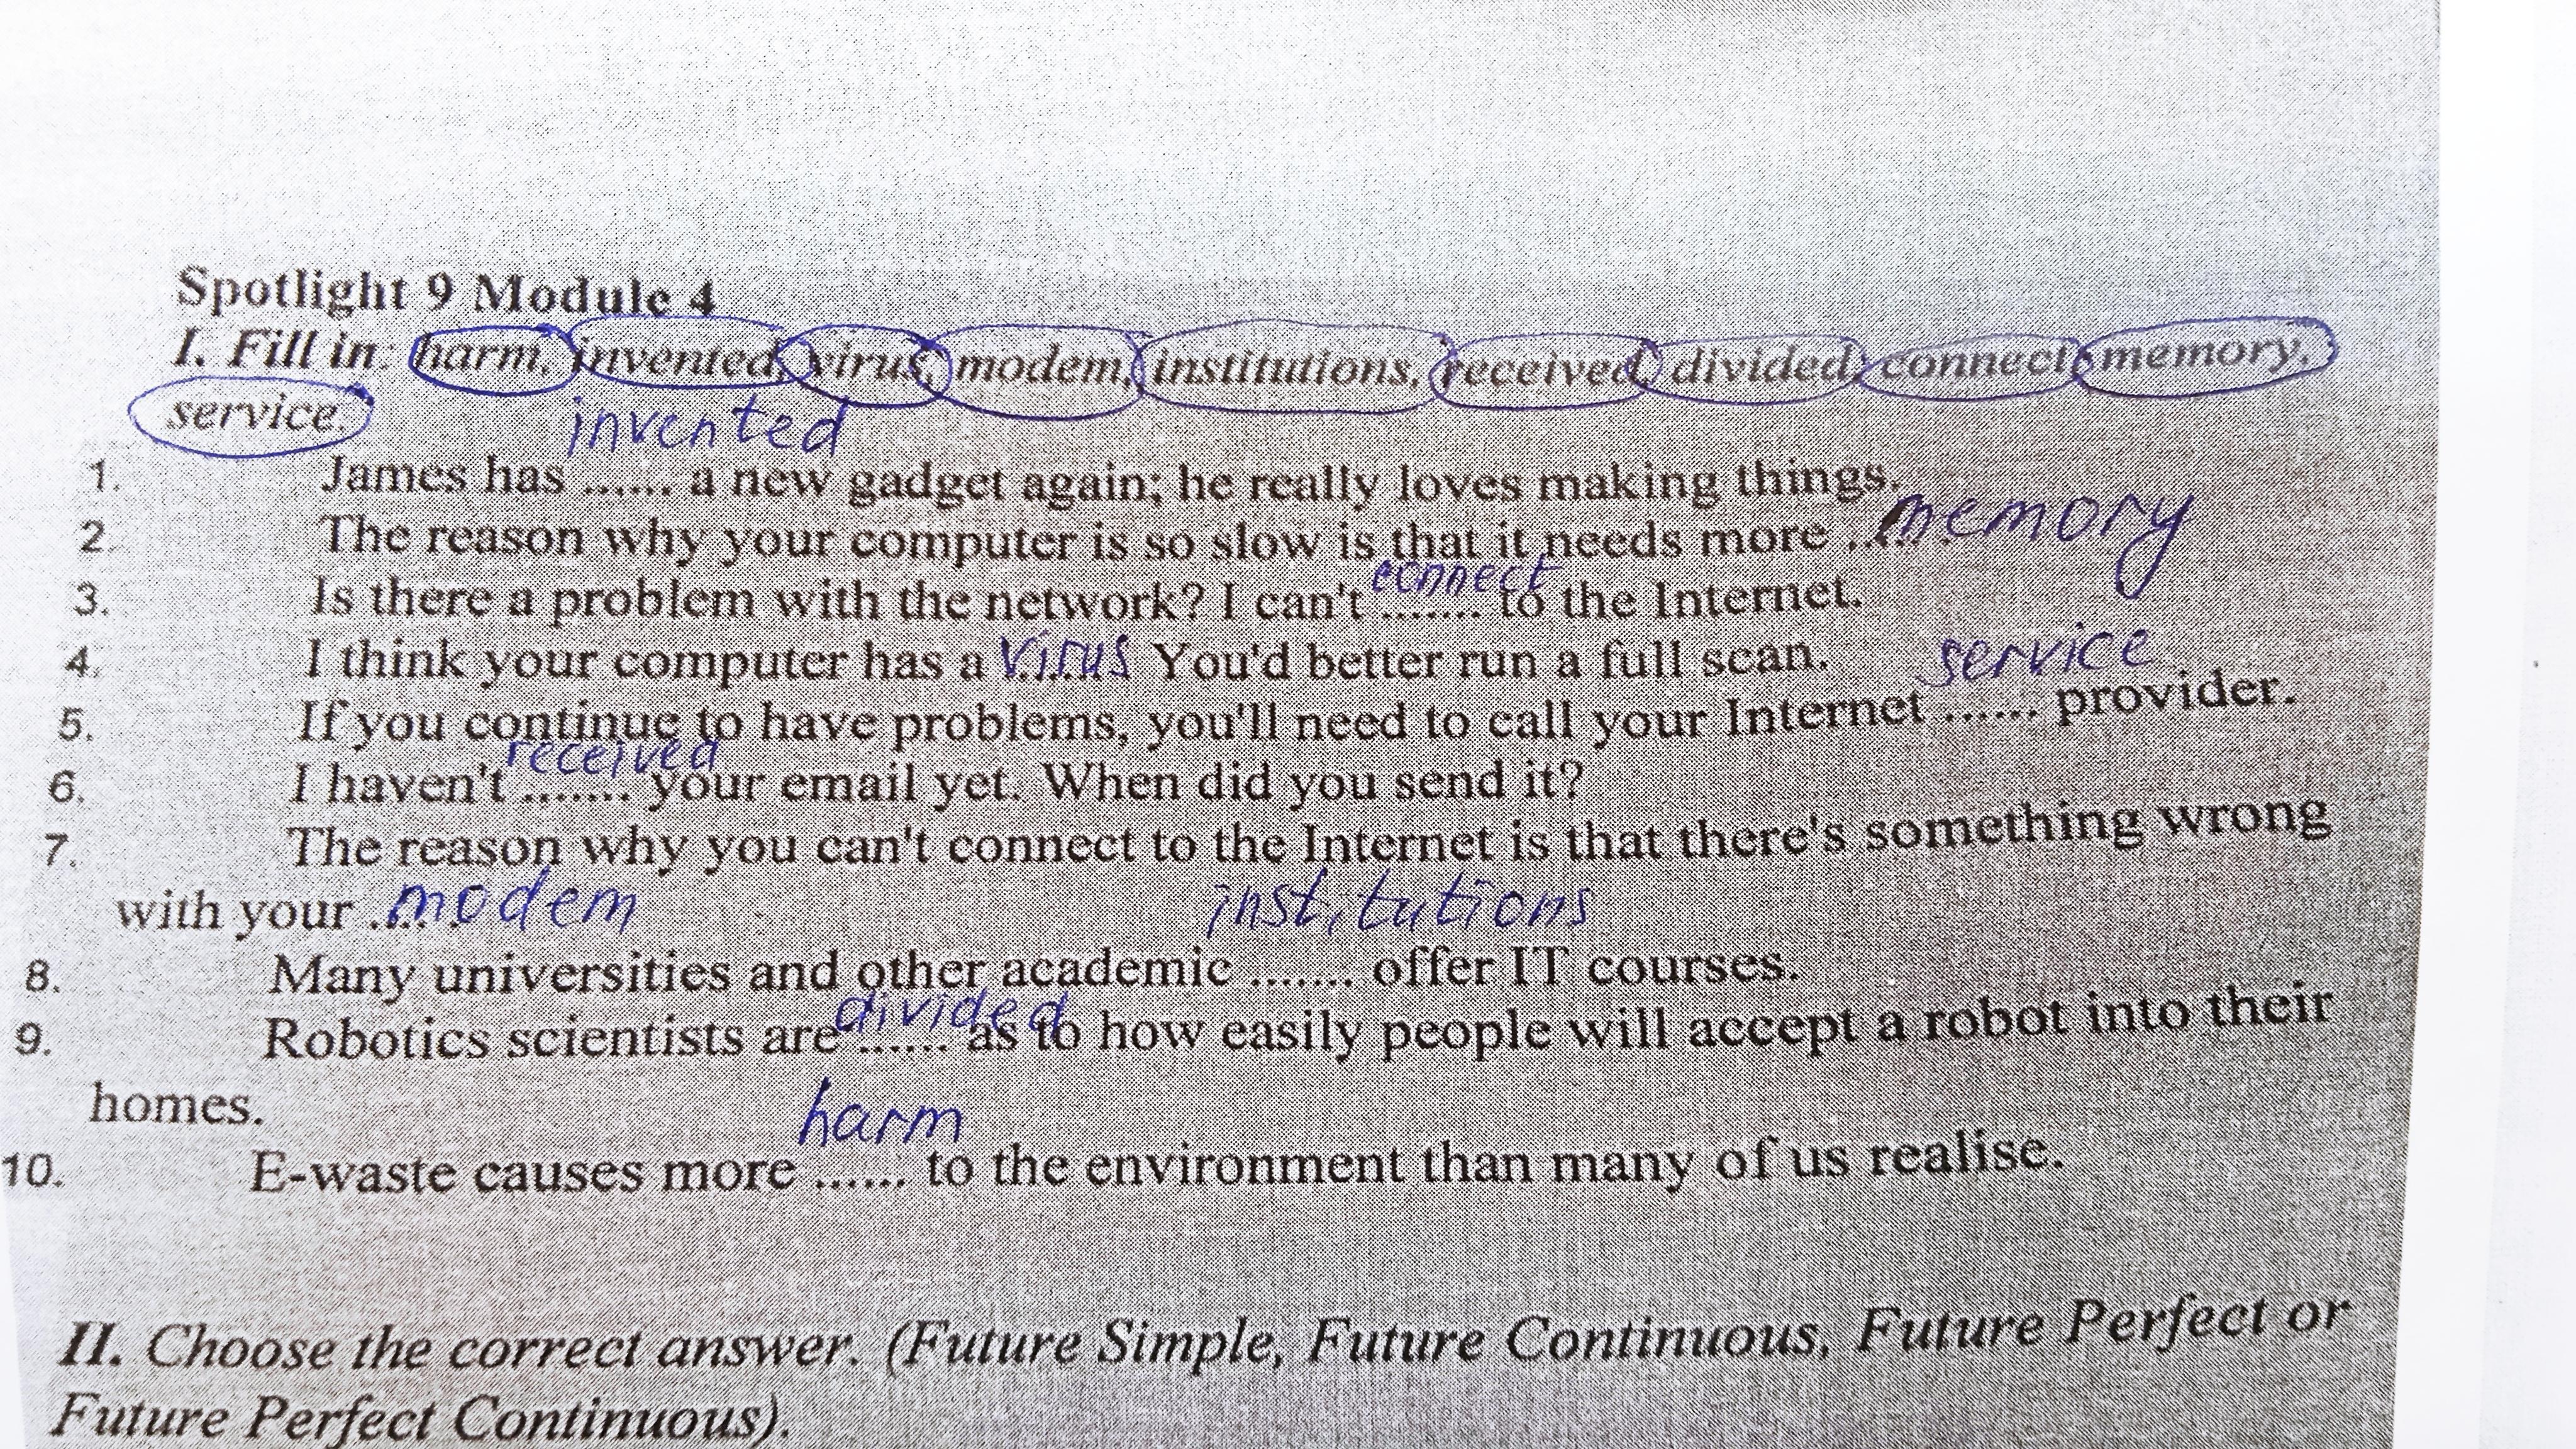 Spotlight 9 Module 4
I. Fill in: harm, invented, virus, modem, institutions, received, divided, connect, memory,
service.
invented
1. James has ...... a new gadget again; he really loves making things.
memory
2. The reason why your computer is so slow is that it needs more ...... .
connect
3. Is there a problem with the network? I can't ....... to the Internet.
4. I think your computer has a virus You'd better run a full scan.
service
5. If you continue to have problems, you'll need to call your Internet ...... provider.
received
6. I haven't ....... your email yet. When did you send it?
7. The reason why you can't connect to the Internet is that there's something wrong
with your ..... modem
institutions
8. Many universities and other academic ....... offer IT courses.
divided
9. Robotics scientists are ...... as to how easily people will accept a robot into their
homes.
harm
10. E-waste causes more ...... to the environment than many of us realise.
II. Choose the correct answer. (Future Simple, Future Continuous, Future Perfect or
Future Perfect Continuous).